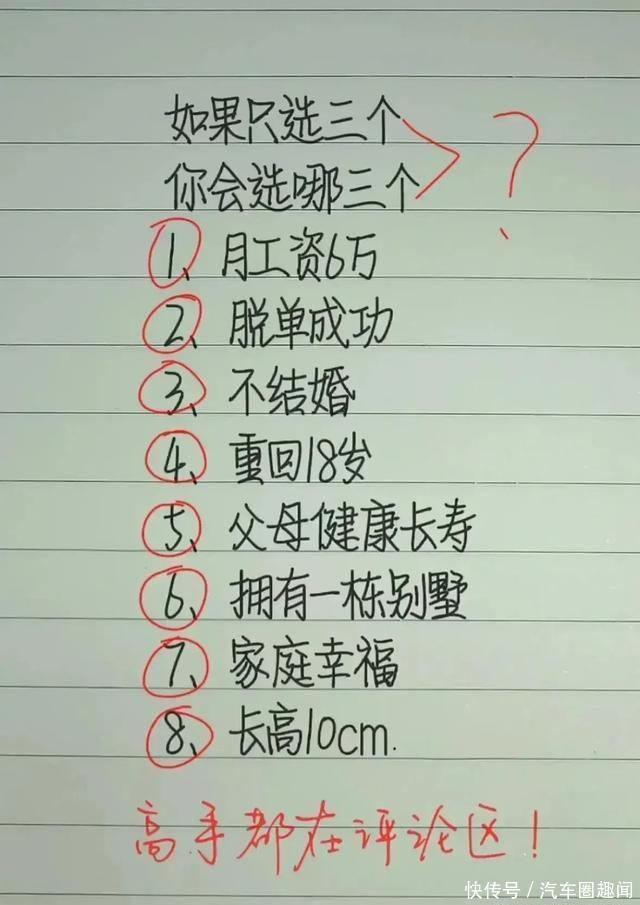 如果只选三个
你会选哪三个 ?
1、月工资6万
2、脱单成功
3、不结婚
4、重回18岁
5、父母健康长寿
6、拥有一栋别墅
7、家庭幸福
8、长高10cm.
高手都在评论区!
快传号/汽车圈趣闻